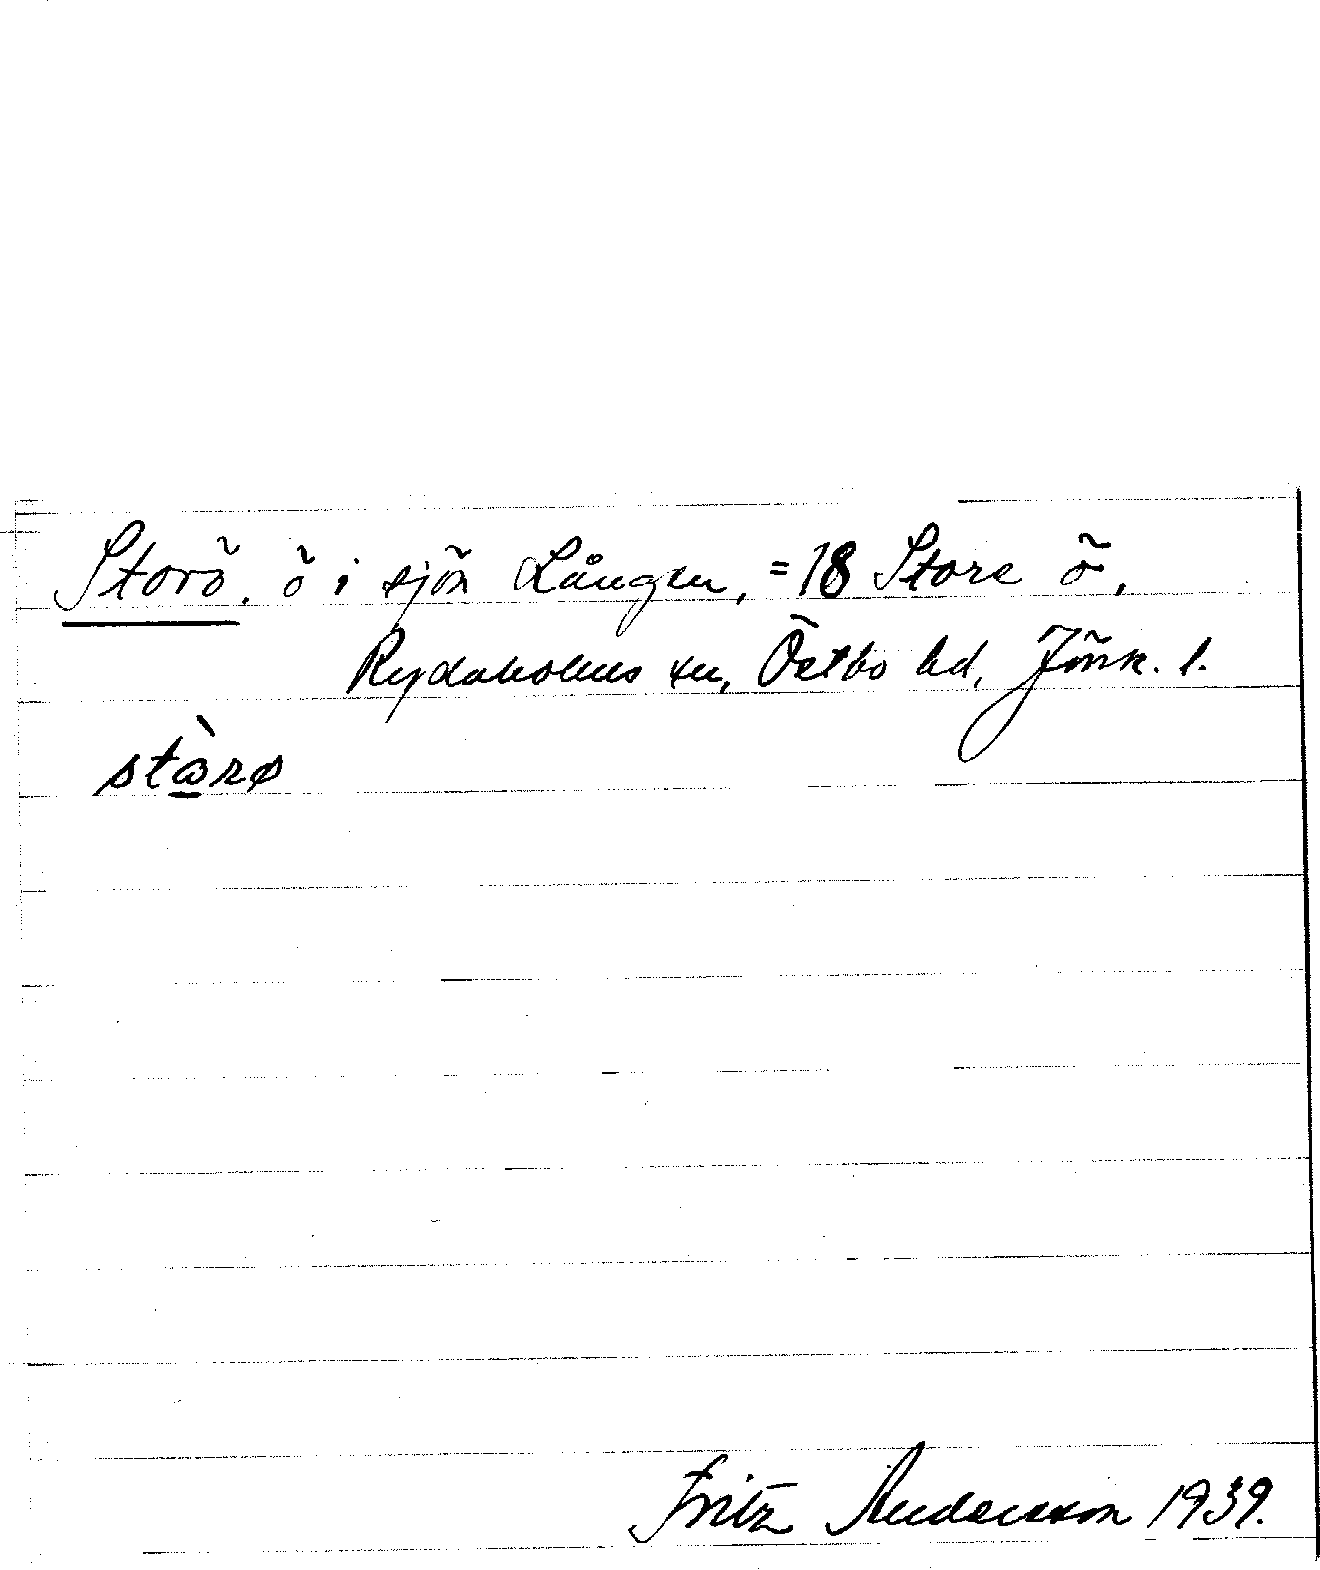 Storö. ö i sjön Lången, = 18 Store ö,
Rydaholms sn, Östbo hd, Jönk. l.
stὼrø
Fritz Andersson 1939.